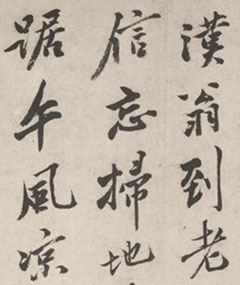 漢翁到老
信忘掃地
踞午風涼